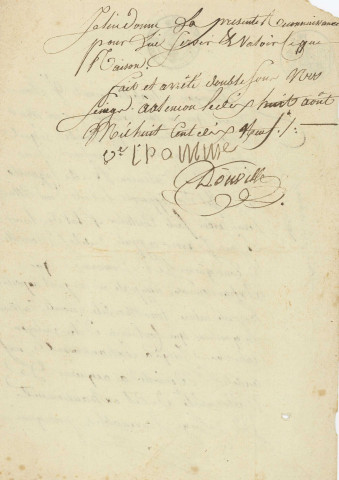 Je lui donne la présente Reconnaissance
pour lui Servir & Valoir Ce que
Raison.
fait et arrêté double sous Nos
Seings à alencon le dix huit août
Mil huit Cent dix Neuf ./.
Ve Lhomme
Douville